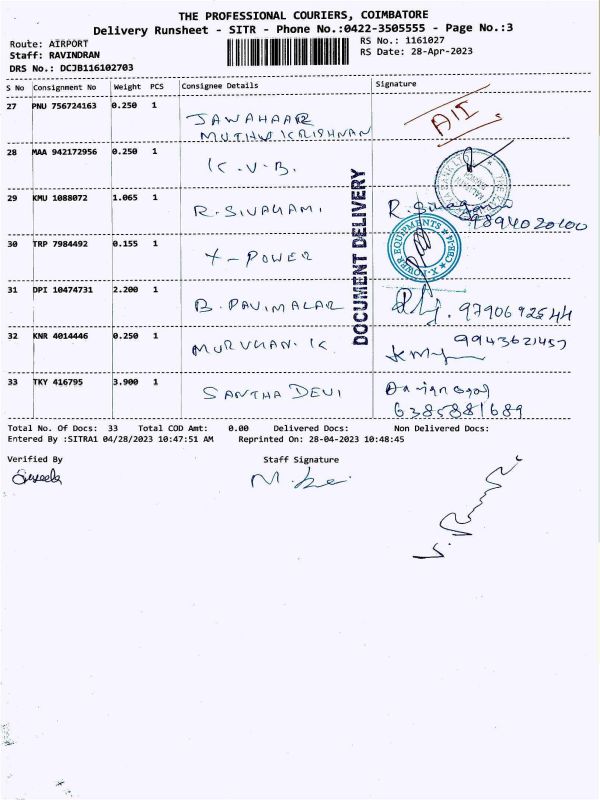 THE PROFESSIONAL COURIERS, COIMBATORE
Delivery Runsheet - SITR - Phone No.:0422-3505555 - Page No.:3
Route: AIRPORT RS No.: 1161027
Staff: RAVINDRAN RS Date: 28-Apr-2023
DRS No.: DCJB116102703
S No Consignment No Weight PCS Consignee Details Signature
27 PNU 756724163 0.250 1 JAWAHAAR
MUTHU KRISHNAN
28 MAA 942172956 0.250 1 K.V.B.
29 KMU 1088072 1.065 1 R.SIVAGAMI R.Sivagami
9894020100
30 TRP 7984492 0.155 1 X-POWER
X-POWER EQUIPMENTS CBE-14
31 DPI 10474731 2.200 1 B.PAVIMALAR 9790692544
DOCUMENT DELIVERY
32 KNR 4014446 0.250 1 MURUGAN.K 9943621457
33 TKY 416795 3.900 1 SANTHA DEVI
6385881689
Total No. Of Docs: 33 Total COD Amt: 0.00 Delivered Docs: Non Delivered Docs:
Entered By :SITRA1 04/28/2023 10:47:51 AM Reprinted On: 28-04-2023 10:48:45
Verified By Staff Signature